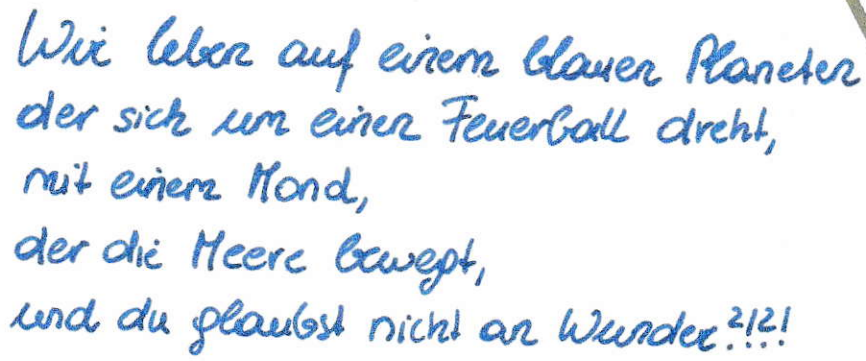 Wir leben auf einem blauen Planeten
der sich um einen Feuerball dreht,
mit einem Mond,
der die Meere bewegt,
und du glaubst nicht an Wunder?!?!